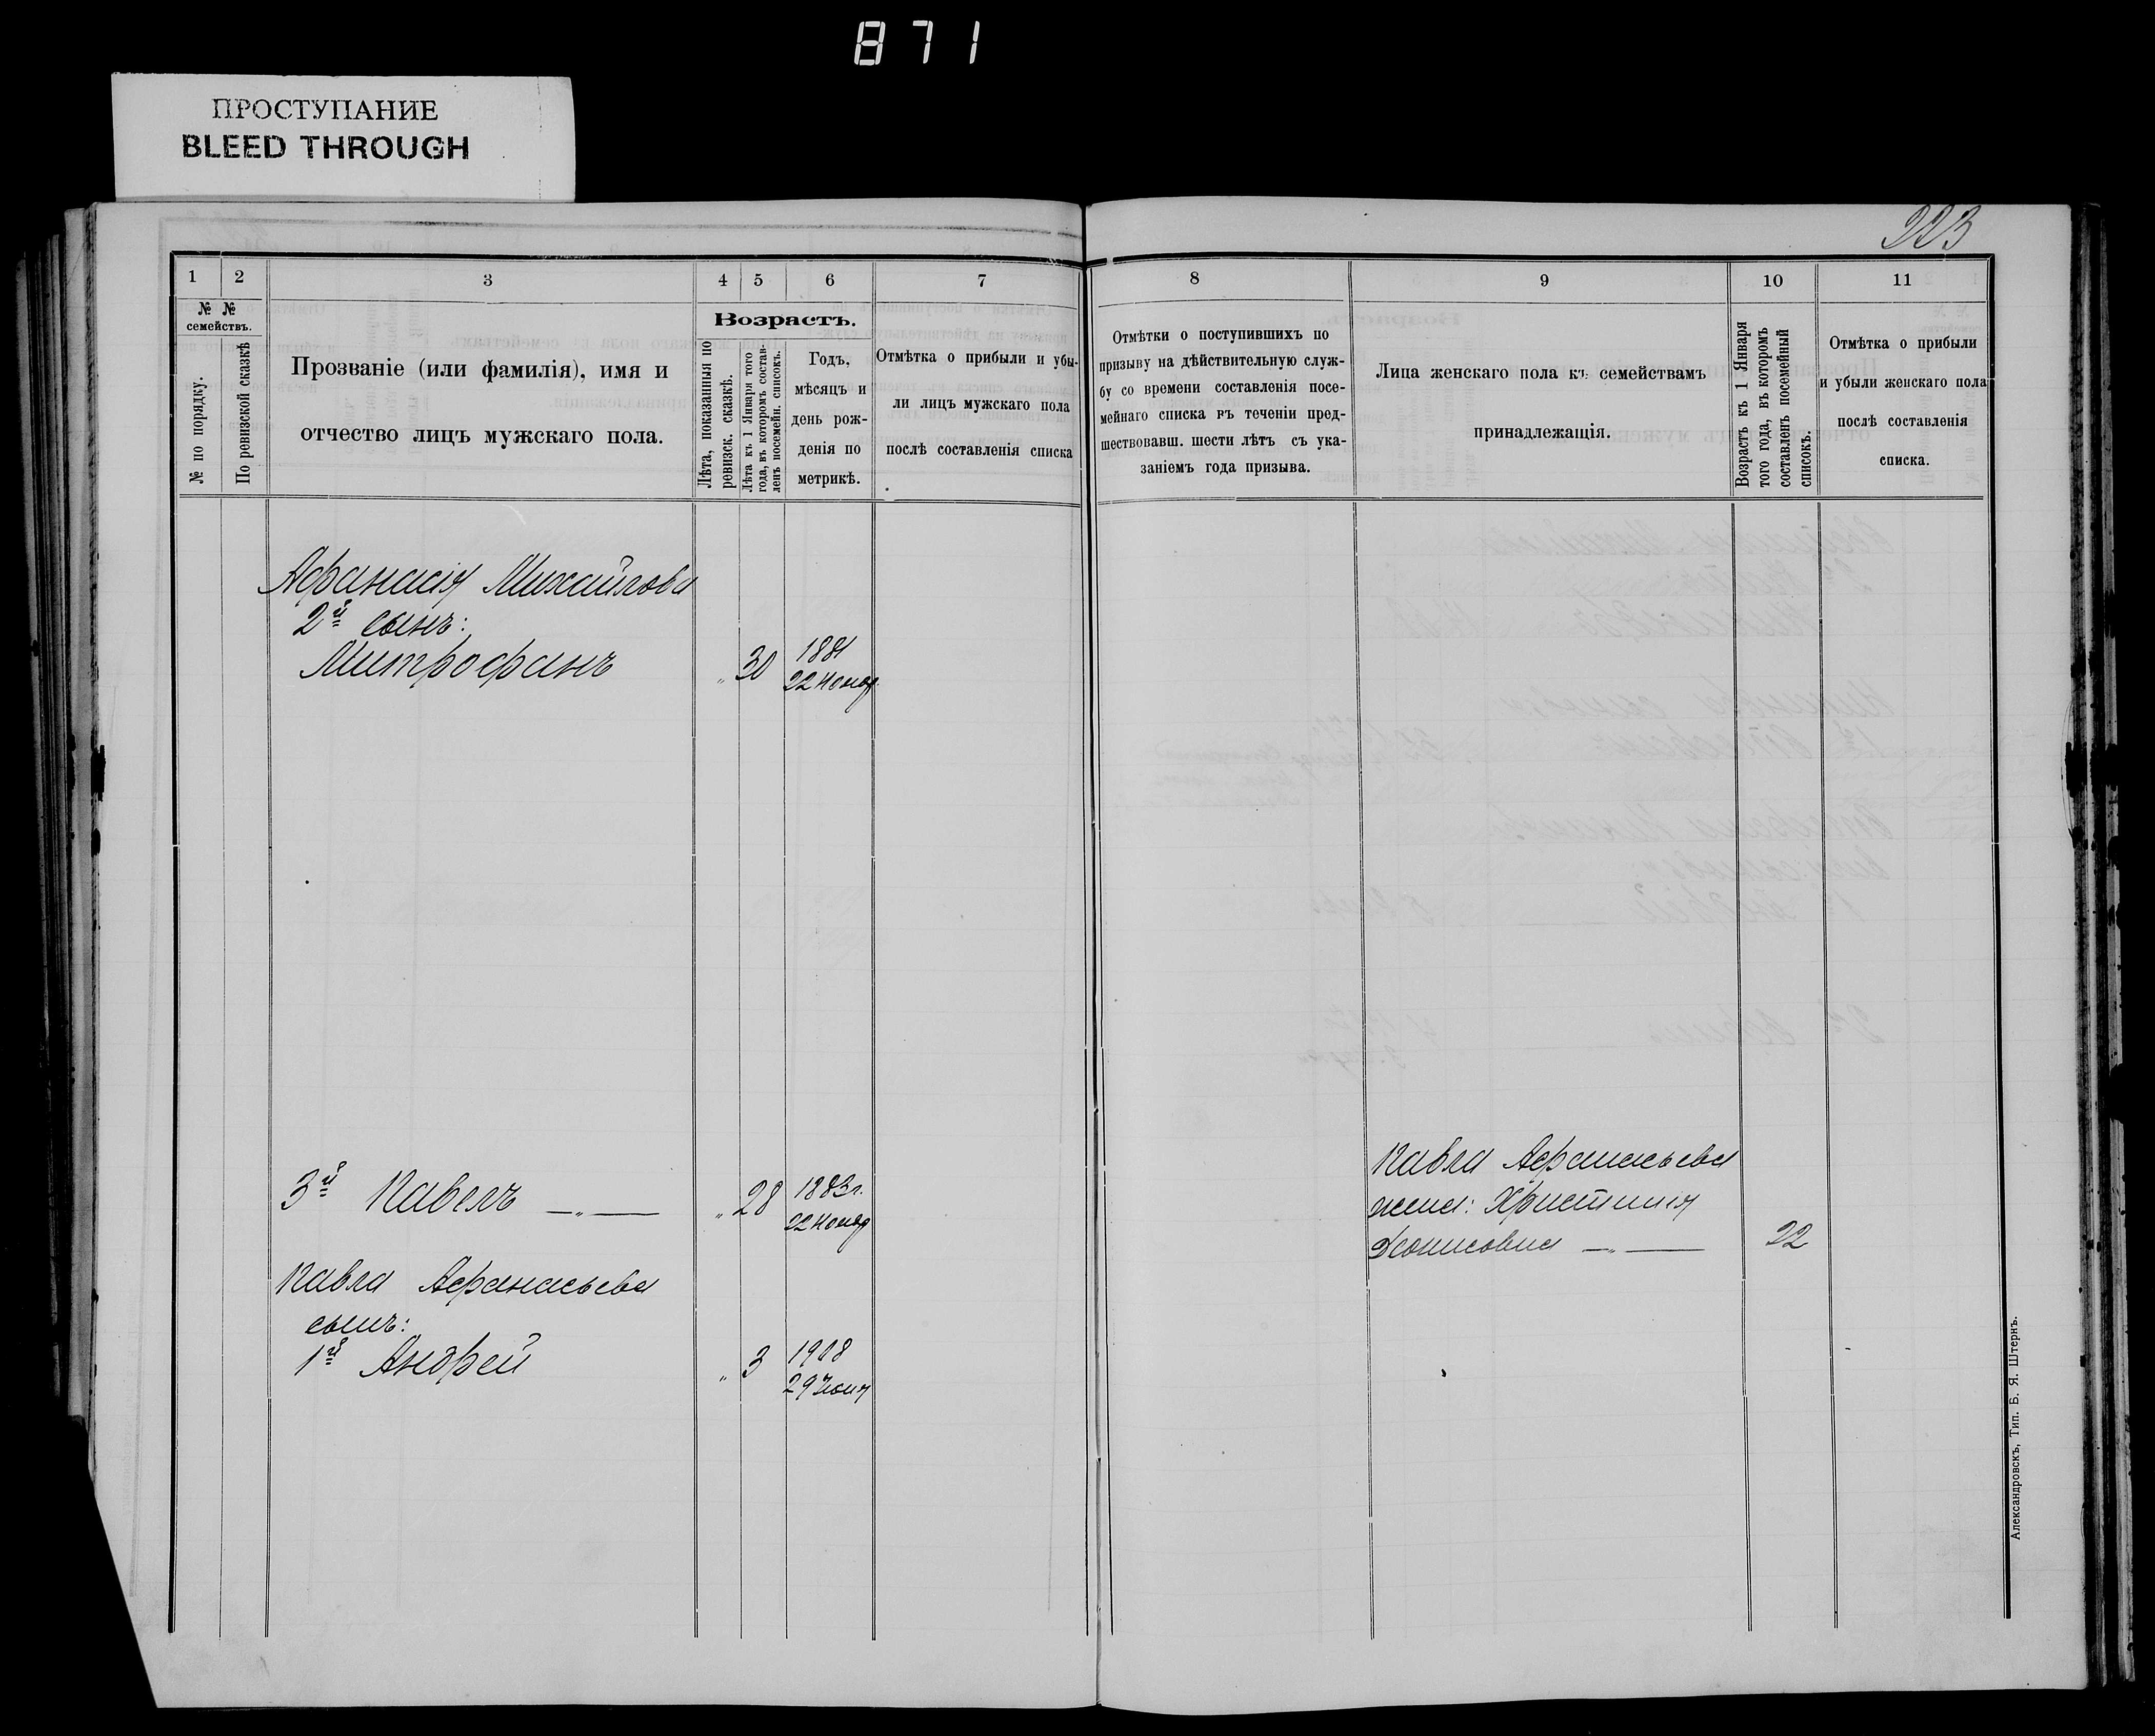 871
ПРОСТУПАНИЕ
BLEED THROUGH
223
1 2 3 4 5 6 7 8 9 10 11
№ №
семействъ.
№ по порядку.
По ревизской сказкѣ
Прозваніе (или фамилія), имя и
отчество лицъ мужскаго пола.
Возрастъ.
Лѣта, показанныя по
ревизск. сказкѣ.
Лѣта къ 1 Января того
года, въ которомъ состав-
ленъ посемейн. списокъ.
Годъ,
мѣсяцъ и
день рож-
денія по
метрикѣ.
Отмѣтка о прибыли и убы-
ли лицъ мужскаго пола
послѣ составленія списка
Отмѣтки о поступившихъ по
призыву на дѣйствительную служ-
бу со времени составленія посе-
мейнаго списка въ теченіи пред-
шествовавш. шести лѣтъ съ ука-
заніемъ года призыва.
Лица женскаго пола къ семействамъ
принадлежащія.
Возрастъ къ 1 Января
того года, въ которомъ
составленъ посемейный
списокъ.
Отмѣтка о прибыли
и убыли женскаго пола
послѣ составленія
списка.
Афанасія Михайлова
2й сынъ:
Митрофанъ " 30 1881
22 Нояб.
3й Павелъ —"— " 28 1883г.
22 Нояб
Павла Афанасьева
сынъ:
1й Андрей " 3 1908
29 Іюня
Павла Афанасьева
жена: Христинія
Денисовна —"— 22
Александровскъ, Тип. Б. Я. Штернъ.